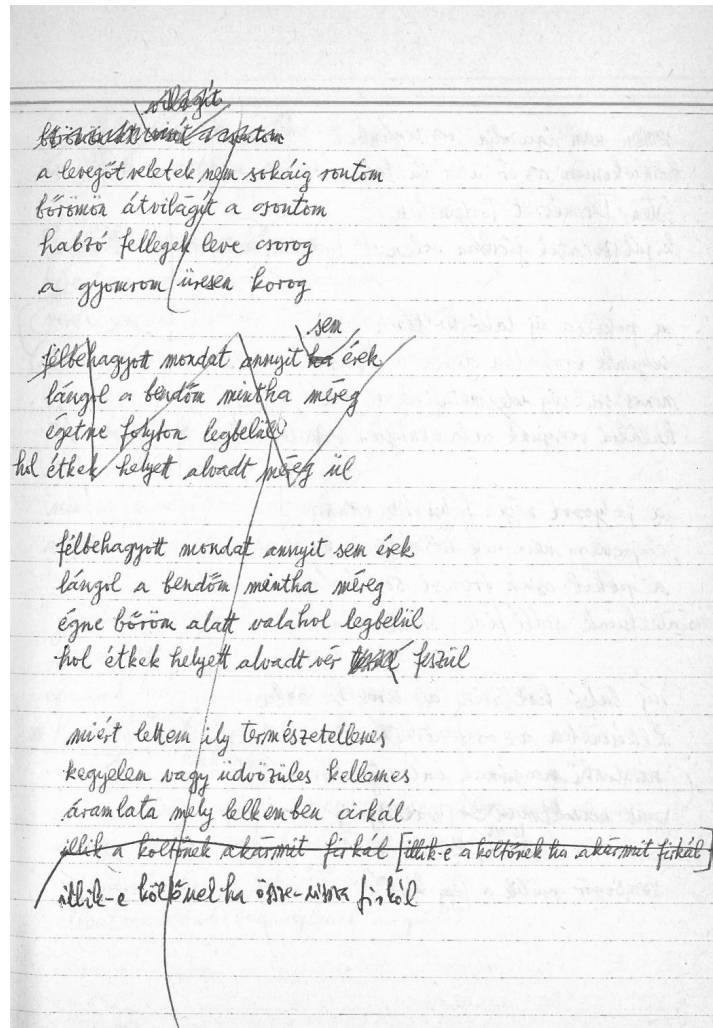 világít
bőrömön a csontom
a levegőt veletek nem sokáig rontom
bőrömön átvilágít a csontom
habzó fellegek leve csorog
a gyomrom üresen korog
sem
félbehagyott mondat annyit ha érek
lángol a bendőm mintha méreg
égetne folyton legbelül
hol étkek helyett alvadt méreg ül
félbehagyott mondat annyit sem érek
lángol a bendőm mintha méreg
égne bőröm alatt valahol legbelül
hol étkek helyett alvadt vér feszül
miért lettem ily természetellenes
kegyelem vagy üdvözülés kellemes
áramlata mely lelkemben cirkál
illik a költőnek akármit firkál [illik-e a költőnek ha akármit firkál]
illik-e költőnek ha össze-vissza firkál